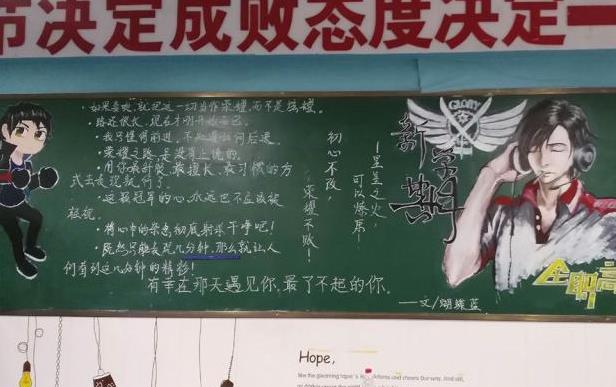 节决定成败态度决定一
·如果喜欢,就把这一切当作荣耀,而不是炫耀。
·路还很长,现在才刚开始而已。
·我只懂得前进,不知道如何后退。
·荣耀之路,是没有上限的。
·用你最舒服、最擅长、最习惯的方
式去表现就行了。
·这颗冠军的心,永远也不应该被
抛锐。
·将心中的杂念彻底射杀干净吧!
·既然只能表现几分钟,那么就让人
们看到这几分钟的精彩!
有幸在那天遇见你,最了不起的你。
初心不改,
荣耀不败!
星星之火,
可以燎原
——文/蝴蝶蓝
GLORY
新学期
全职高
Hope,